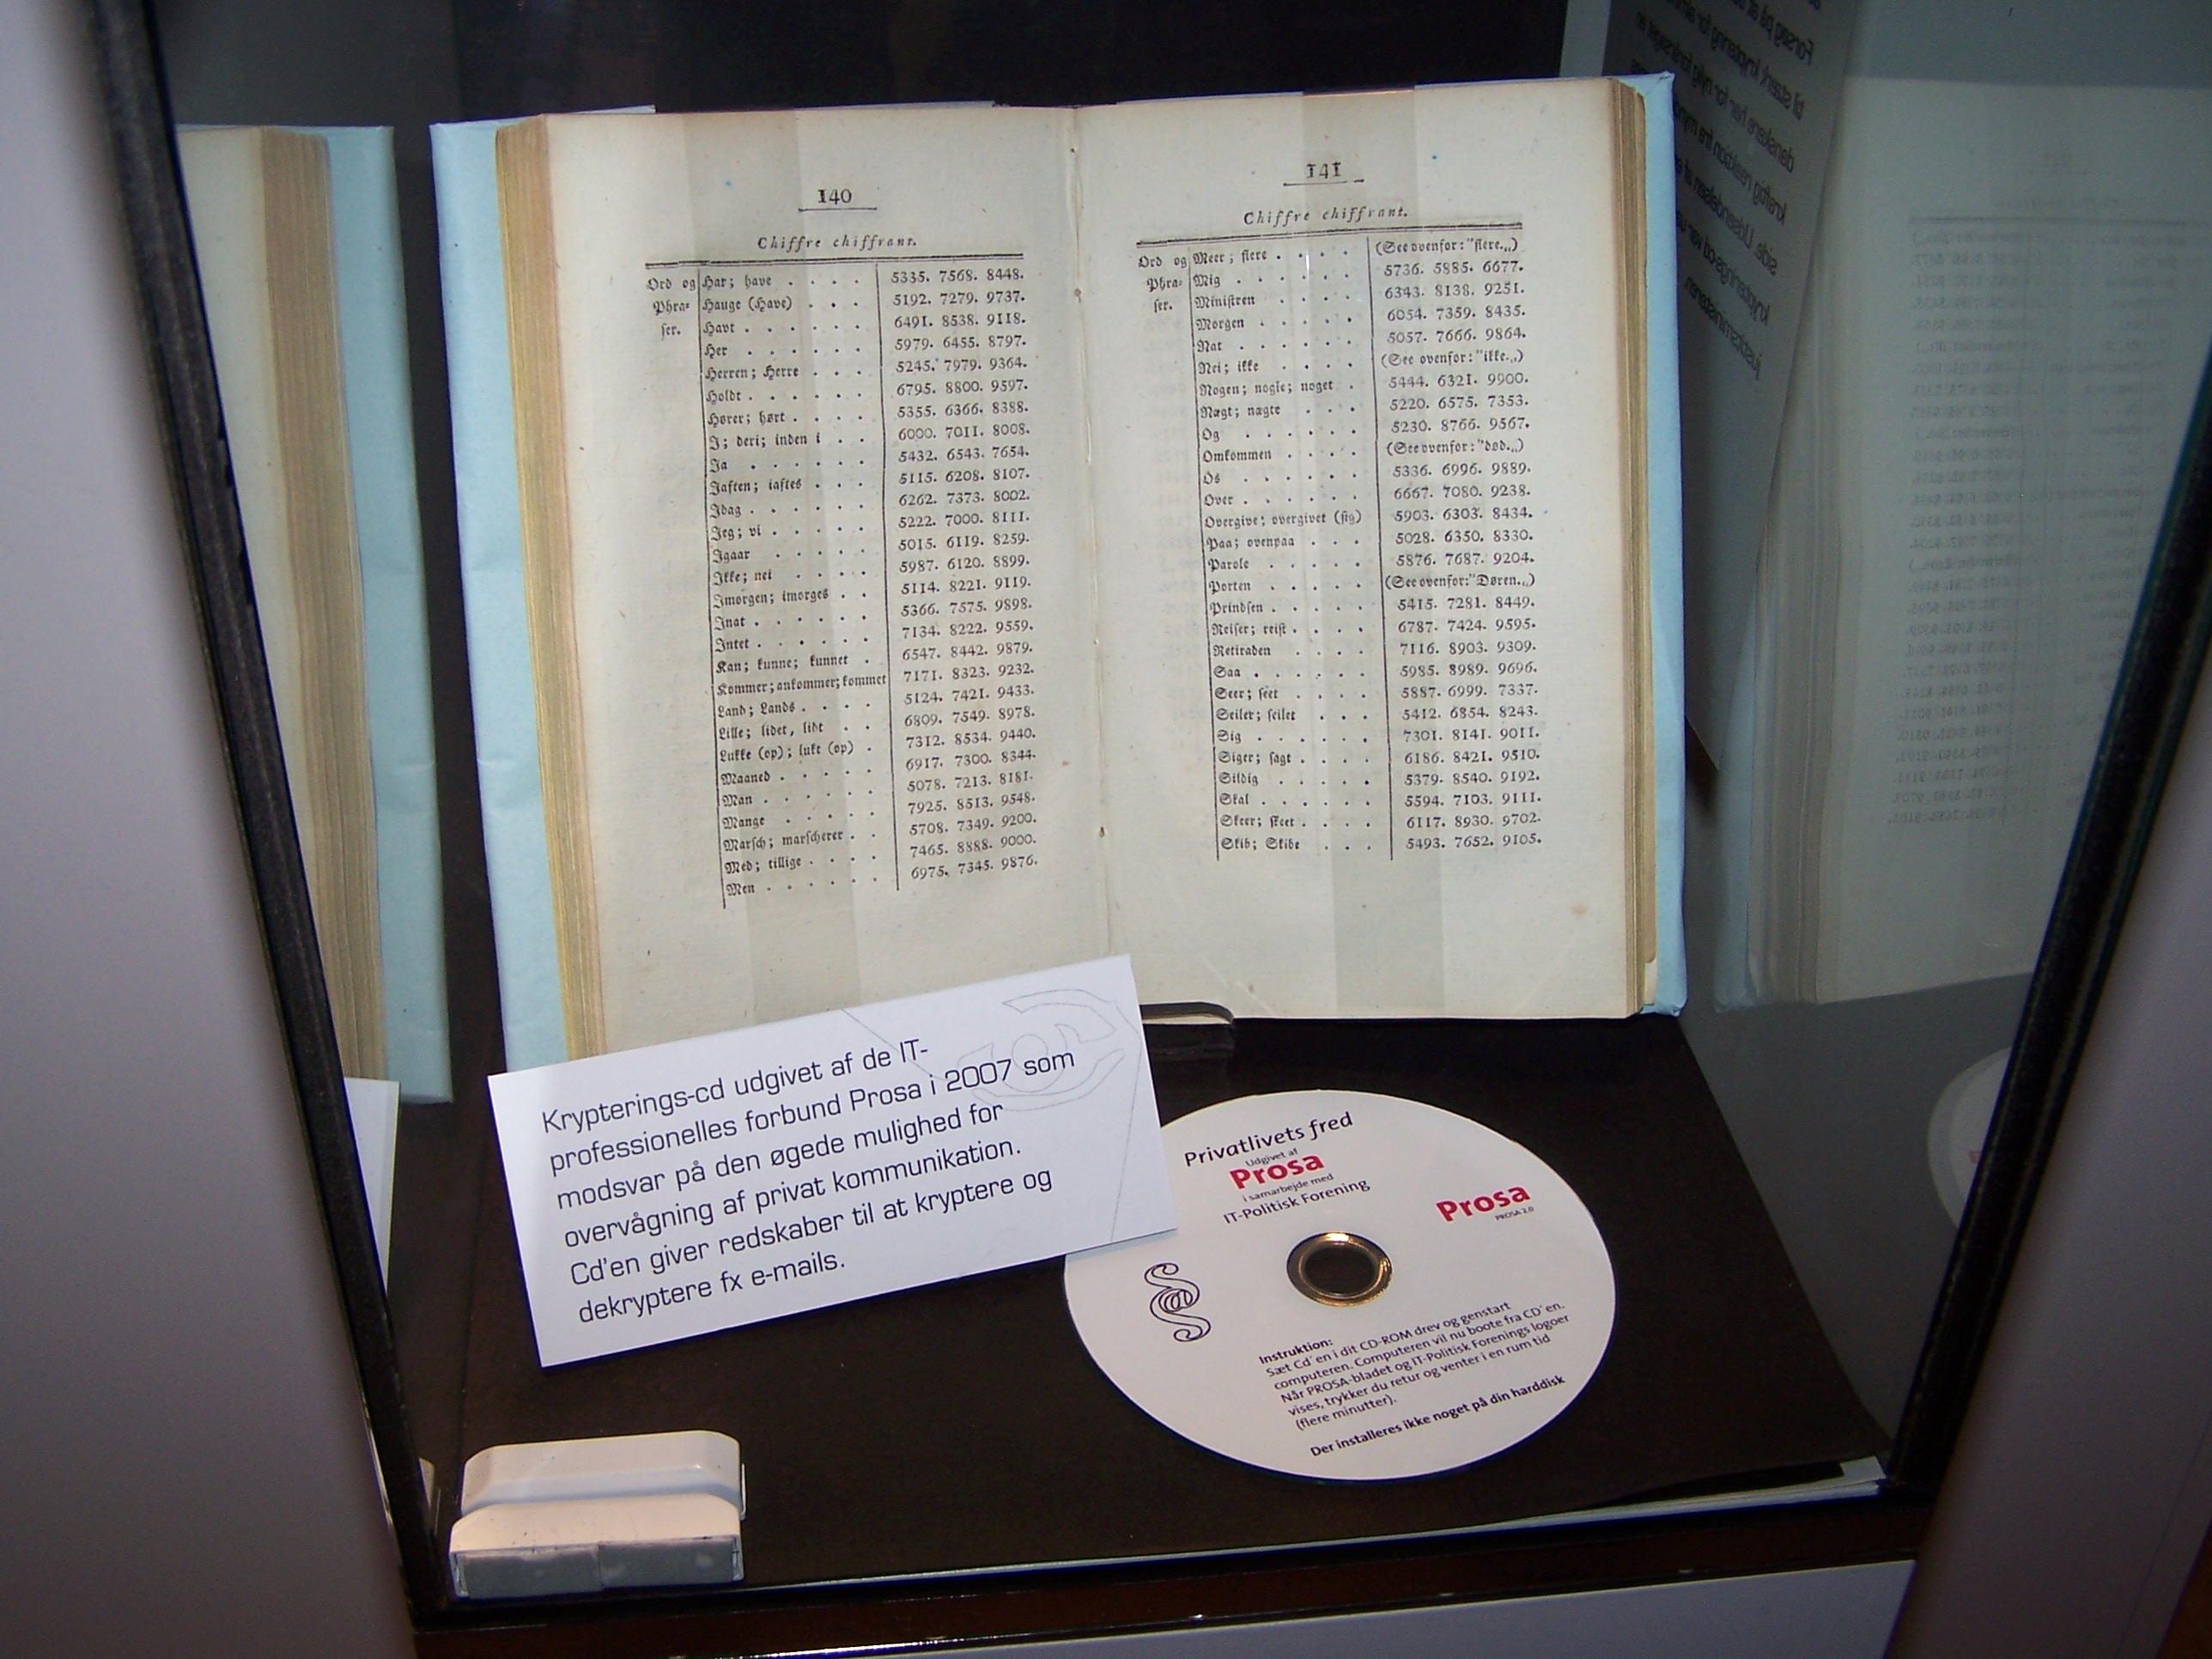 140
Chiffre chiffrant.
Ord og Har; have . . . . 5335. 7568. 8448.
Phra= Hauge (Have) . . . 5192. 7279. 9737.
ser. Havt . . . . . . 6491. 8538. 9118.
Her . . . . . . 5979. 6455. 8797.
Herren; Herre . . . 5245. 7979. 9364.
Holdt . . . . . 6795. 8800. 9597.
Hører; hørt . . . . 5355. 6366. 8388.
I; deri; inden i . . 6000. 7011. 8008.
Ja . . . . . . 5432. 6543. 7654.
Iaften; iaftes . . . 5115. 6208. 8107.
Idag . . . . . . 6262. 7373. 8002.
Jeg; vi . . . . . 5222. 7000. 8111.
Igaar . . . . . 5015. 6119. 8259.
Ikke; nei . . . . 5987. 6120. 8899.
Imorgen; imorges . . 5114. 8221. 9119.
Inat . . . . . . 5366. 7575. 9898.
Intet . . . . . . 7134. 8222. 9559.
Kan; kunne; kunnet . 6547. 8442. 9879.
Kommer; ankommer; kommet 7171. 8323. 9232.
Land; Lands . . . . 5124. 7421. 9433.
Lille; lidet, lidt . . 6809. 7549. 8978.
Lukke (op); lukt (op) . 7312. 8534. 9440.
Maaned . . . . . 6917. 7300. 8344.
Man . . . . . . 5078. 7213. 8181.
Mange . . . . . 7925. 8513. 9548.
Marsch; marscherer . . 5708. 7349. 9200.
Med; tillige . . . . 7465. 8888. 9000.
Men . . . . . . 6975. 7345. 9876.
141
Chiffre chiffrant.
Ord og Meer; flere . . . . (See ovenfor: "flere.„)
Phra= Mig . . . . . . 5736. 5885. 6677.
ser. Ministren . . . . 6343. 8138. 9251.
Morgen . . . . . 6054. 7359. 8435.
Nat . . . . . . 5057. 7666. 9864.
Nei; ikke . . . . (See ovenfor: "ikke.„)
Nogen; nogle; noget . 5444. 6321. 9900.
Nægt; nægte . . . 5220. 6575. 7353.
Og . . . . . . 5230. 8766. 9567.
Omkommen . . . . (See ovenfor: "død.„)
Os . . . . . . 5336. 6996. 9889.
Over . . . . . . 6667. 7080. 9238.
Overgive; overgivet (sig) 5903. 6303. 8434.
Paa; ovenpaa . . . 5028. 6350. 8330.
Parole . . . . . 5876. 7687. 9204.
Porten . . . . . (See ovenfor: "Døren.„)
Prindsen . . . . . 5415. 7281. 8449.
Reiser; reist . . . . 6787. 7424. 9595.
Retiraden . . . . 7116. 8903. 9309.
Saa . . . . . . 5985. 8989. 9696.
Seer; seet . . . . 5887. 6999. 7337.
Seiler; seilet . . . 5412. 6854. 8243.
Sig . . . . . . 7301. 8141. 9011.
Siger; sagt . . . . 6186. 8421. 9510.
Sildig . . . . . 5379. 8540. 9192.
Skal . . . . . . 5594. 7103. 9111.
Skeer; skeet . . . . 6117. 8930. 9702.
Skib; Skibe . . . 5493. 7652. 9105.
Krypterings-cd udgivet af de IT-
professionelles forbund Prosa i 2007 som
modsvar på den øgede mulighed for
overvågning af privat kommunikation.
Cd'en giver redskaber til at kryptere og
dekryptere fx e-mails.
Privatlivets fred
Udgivet af
Prosa
i samarbejde med
IT-Politisk Forening
Prosa
PROSA 2.0
Instruktion:
Sæt Cd´en i dit CD-ROM drev og genstart
computeren. Computeren vil nu boote fra CD´en.
Når PROSA-bladet og IT-Politisk Forenings logoer
vises, trykker du retur og venter i en rum tid
(flere minutter).
Der installeres ikke noget på din harddisk